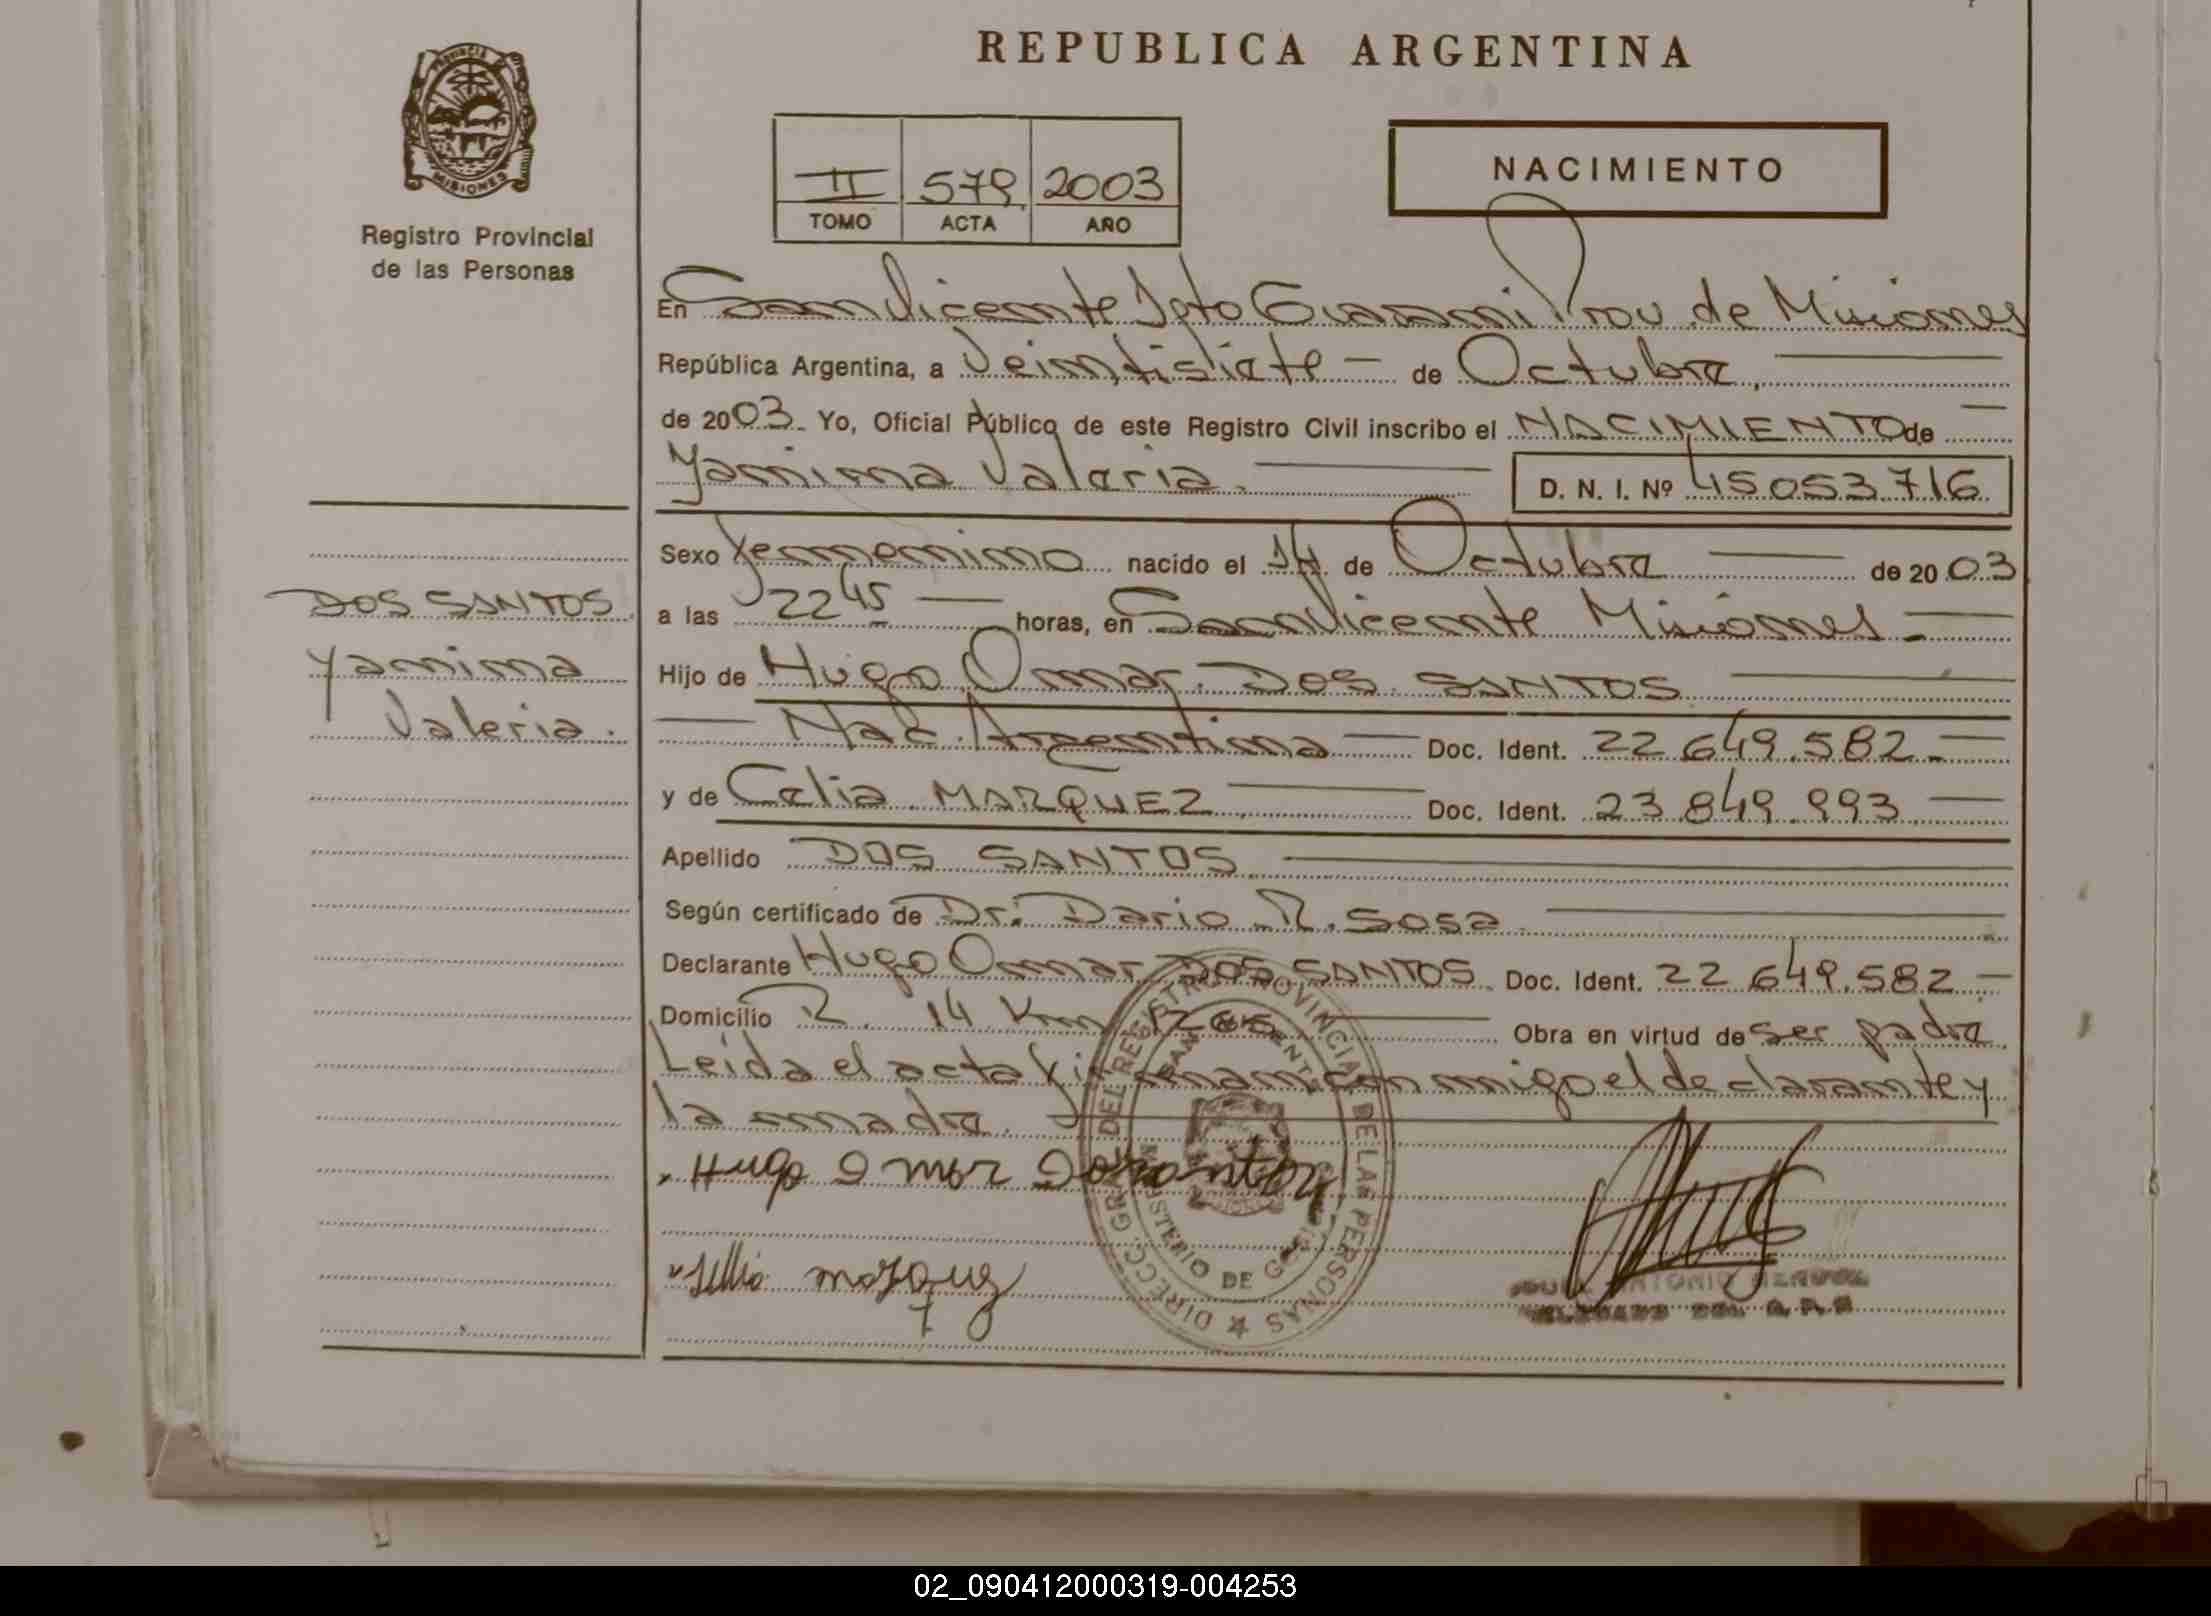 REPUBLICA ARGENTINA
PROVINCIA DE MISIONES
Registro Provincial
de las Personas
II 579 2003
TOMO ACTA AÑO
NACIMIENTO
En San Vicente Dpto Guarani Prov de Misiones
República Argentina, a Veintisiete de Octubre
de 2003 Yo, Oficial Público de este Registro Civil inscribo el NACIMIENTO de
Yamima Valeria. D. N. I. Nº 45053.716
Sexo femenino nacido el 14 de Octubre de 2003
a las 22 45 horas, en San Vicente Misiones
Hijo de Hugo Omar DOS SANTOS
Nac. Argentina Doc. Ident. 22 649.582
y de Celia MARQUEZ Doc. Ident. 23 849.993
Apellido DOS SANTOS
Según certificado de Dr. Dario R. Sosa
Declarante Hugo Omar DOS SANTOS Doc. Ident. 22 649.582
Domicilio R. 14 Km Obra en virtud de ser padre
Leida el acta firman con migo el declarante y
la madre.
Hugo Omar
DOS SANTOS
Yamima
Valeria.
DIRECC. GRAL. DEL REGISTRO PROVINCIAL DE LAS PERSONAS
SAN VICENTE
MINISTERIO DE GOBIERNO
ANTONIO
02_090412000319-004253